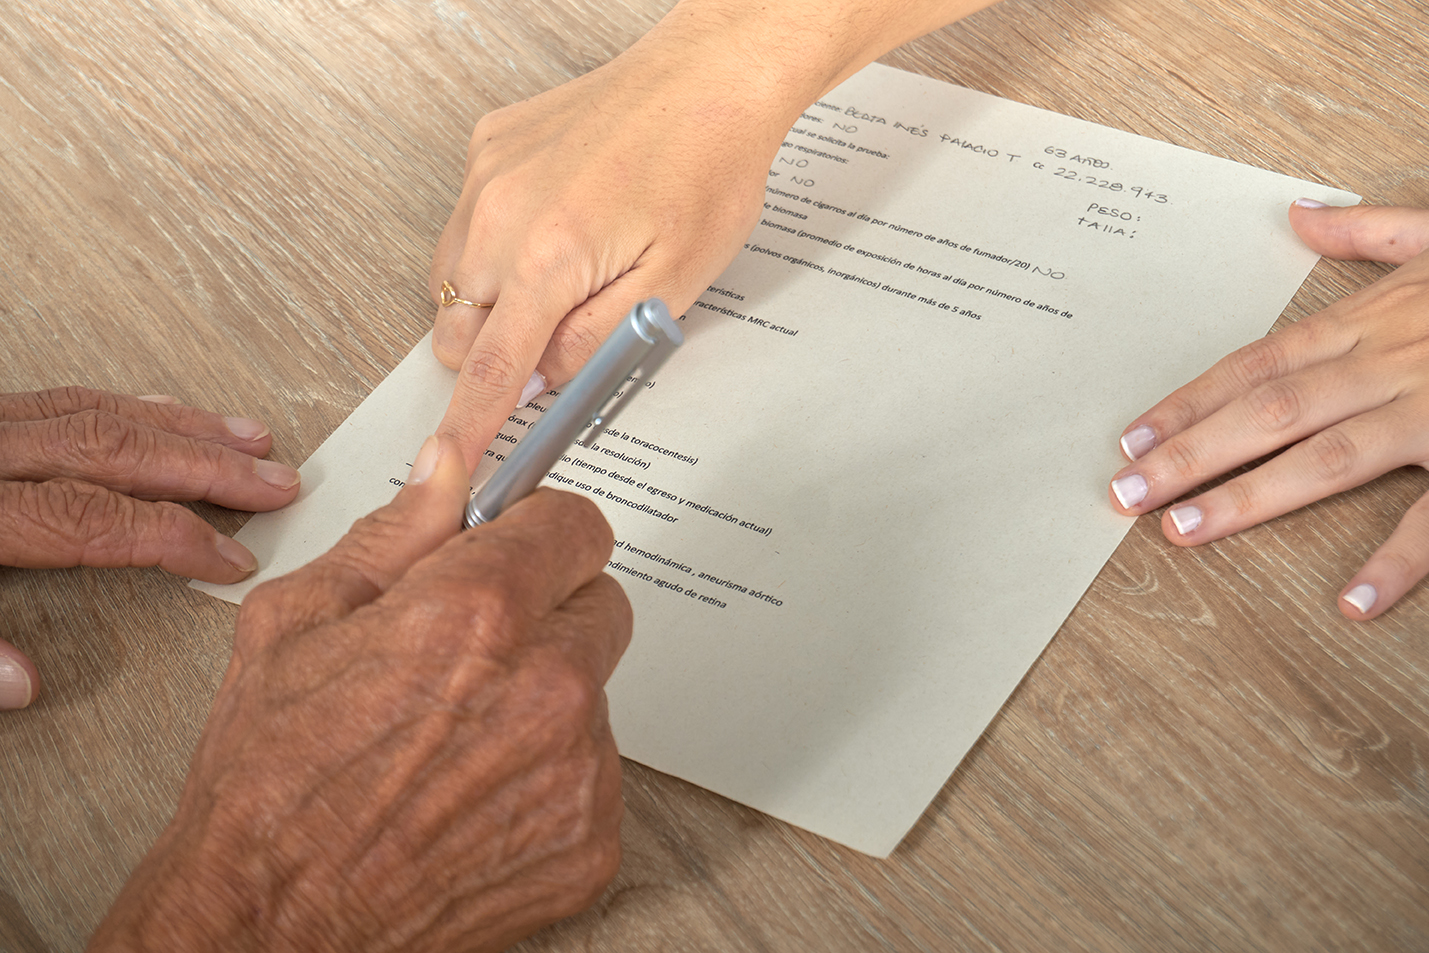 ciente: BERTA INÉS PALACIO T 63 AÑOS.
ores: NO cc 22.228.943
cual se solicita la prueba:
eo respiratorios: PESO:
NO TALLA:
or NO
(número de cigarros al día por número de años de fumador/20) NO
de biomasa
biomasa (promedio de exposición de horas al día por número de años de
s (polvos orgánicos, inorgánicos) durante más de 5 años
terísticas
racterísticas MRC actual
n
o)
o)
pleu
órax ( desde la toracocentesis)
gudo sde la resolución)
ra qu io (tiempo desde el egreso y medicación actual)
con dique uso de broncodilatador
ad hemodinámica , aneurisma aórtico
ndimiento agudo de retina